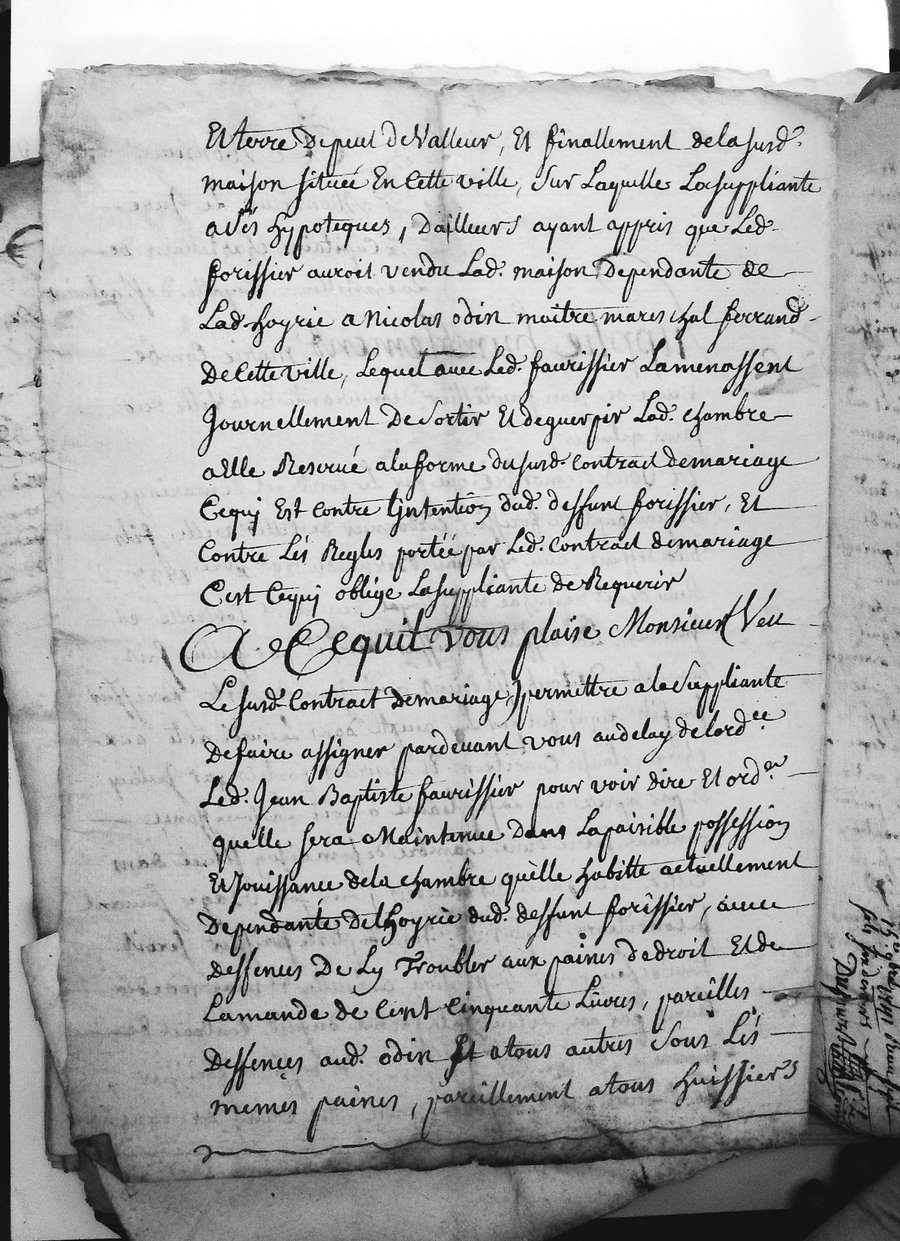 Et terre De peut De Valleur, Et finallement de la susd.
maison situeé En Cette ville, sur Laquelle La suppliante
a sés hypoteques, D'ailleurs ayant appris que Led.
forissier auroit vendu Lad. maison Dependante de
Lad hoyrie a Nicolas odin maitre mareschal ferrand
De Cette ville, Lequel avec Led. faurissier La menassent
Journellement De sortir Et deguerpir Lad. chambre
a Elle Reservé a la forme du susd. contract de mariage
Cequj Est contre Ljntention dud. deffunt forissier, Et
Contre Lés Regles porteé par Led. contract de mariage
C'est Cequj oblige La suppliante de Requerir
A Cequil vous plaise Monsieur (Veu
Le susd. Contract De mariage,) permettre a la suppliante
De faire assigner pardevant vous au delay de lord.ce
Led. Jean Baptiste faurissier pour voir dire Et ord.er
quelle sera Maintenue Dans La paisible possession
Et Jouissance de la chambre quélle habitte actuellement
Dependante de Lhoyrie dud. deffunt forissier, avec
Deffences De Ly Troubler aux paines de droit Et de
Lamande de Cent Cinquante Livres, pareilles
Deffences aud. odin Et a tous autres sous Lés
memes paines, pareillement a tous huissiers